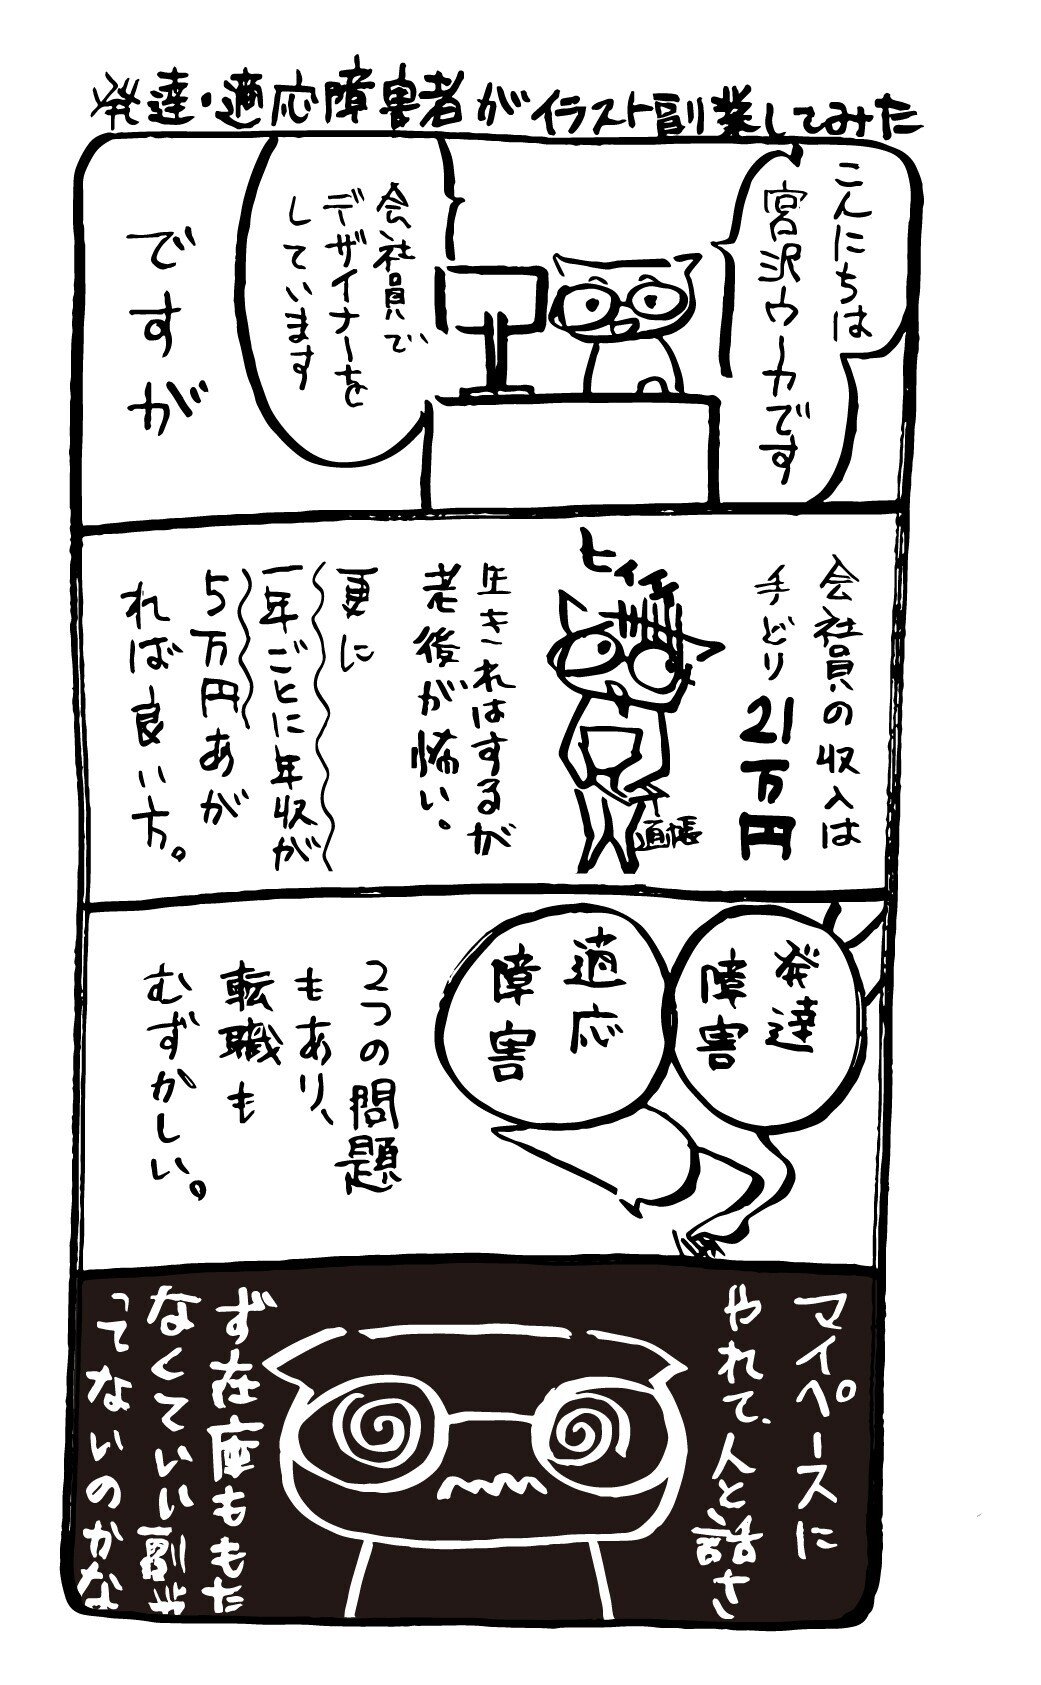 発達・適応障害者がイラスト副業してみた
こんにちは
宮沢ウーカです
会社員で
デザイナーを
しています
ですが
会社員の収入は
手どり
21万円
ヒィィィ
通帳
生きれはするが
老後が怖い。
更に
一年ごとに年収が
5万円あが
れば良い方。
発達
障害
適応
障害
2つの問題
もあり、
転職も
むずかしい。
マイペースに
やれて、人と話さ
ず在庫ももた
なくていい副業
ってないのかな